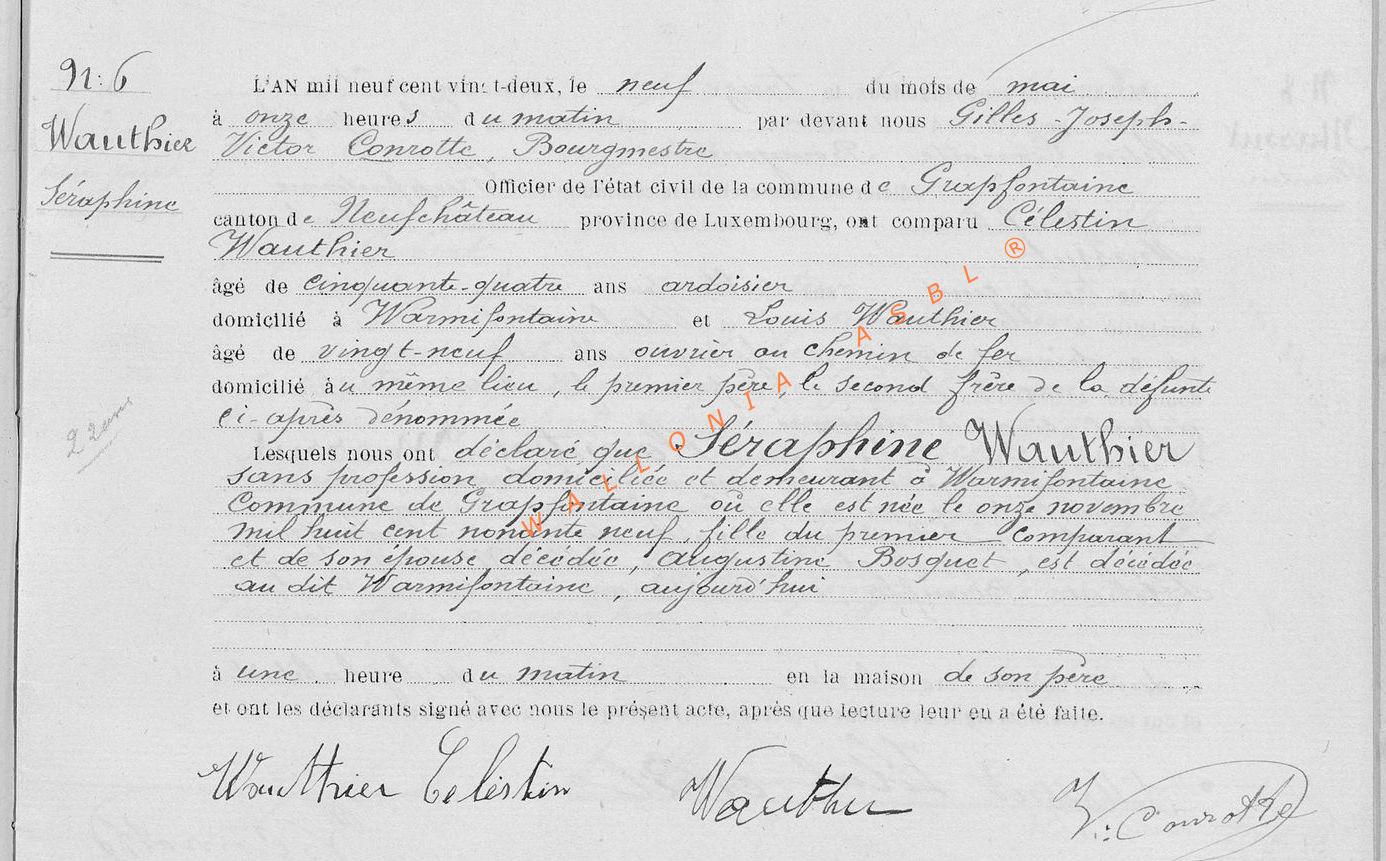 N: 6
Wauthier
Séraphine
L'AN mil neuf cent vingt-deux, le neuf du mois de mai
à onze heures du matin par devant nous Gilles-Joseph-
Victor Conrotte, Bourgmestre
Officier de l'état civil de la commune de Grapfontaine
canton de Neufchâteau province de Luxembourg, ont comparu Célestin
Wauthier
âgé de cinquante-quatre ans ardoisier
domicilié à Warmifontaine et Louis Wauthier
âgé de vingt-neuf ans ouvrier au chemin de fer
domicilié au même lieu, le premier père, le second frère de la défunte
ci-après dénommée
Lesquels nous ont déclaré que Séraphine Wauthier
sans profession, domiciliée et demeurant à Warmifontaine
Commune de Grapfontaine où elle est née le onze novembre
mil huit cent nonante neuf, fille du premier comparant
et de son épouse décédée, Augustine Bosquet, est décédée
au dit Warmifontaine, aujourd'hui
à une heure du matin en la maison de son père
et ont les déclarants signé avec nous le présent acte, après que lecture leur en a été faite.
Wauthier Célestin Wauthier V. Conrotte
WALLONIA ASBL ®